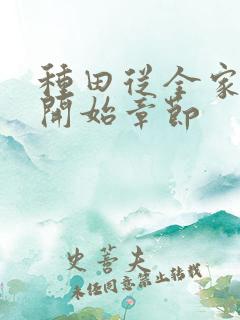 種田從全家
開始章節
史蒼夫
未經同意禁止轉載